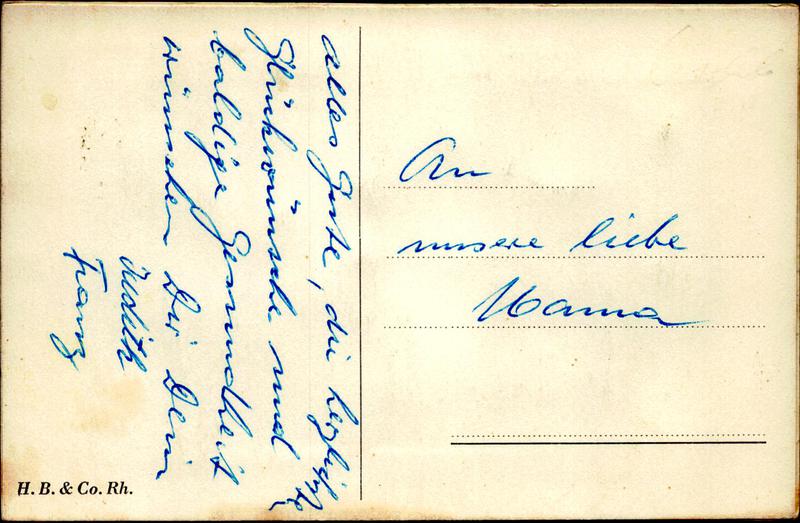 alles Gute, die herzlichste
Glückwünsche und
baldige Gesundheit
wünschen Dir Dein
Judith
Franz
An
unsere liebe
Mama
H. B. & Co. Rh.